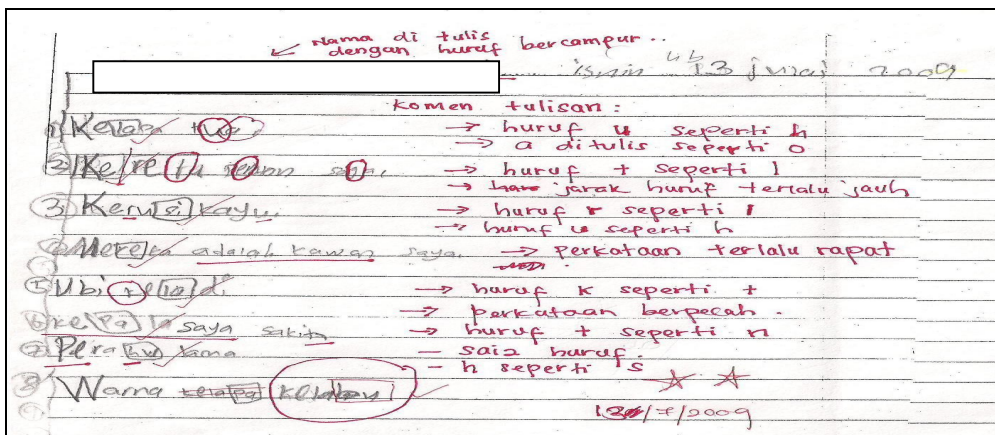 Nama di tulis
dengan huruf bercampur..
isnin 13 julai 2009
Komen tulisan:
1) Kelapa tua → huruf u seperti h
→ a ditulis seperti o
2) Kereta → huruf t seperti l
→ jarak huruf terlalu jauh
3) Kerusi kayu. → huruf r seperti l
→ huruf u seperti h
4) Mereka adalah kawan saya. → perkataan terlalu rapat
5) Ubi → huruf k seperti t
→ perkataan berpecah.
6) kepala saya sakit → huruf t seperti n
7) Perahu lama – saiz huruf.
– h seperti s
8) Warna kelabu
13/7/2009